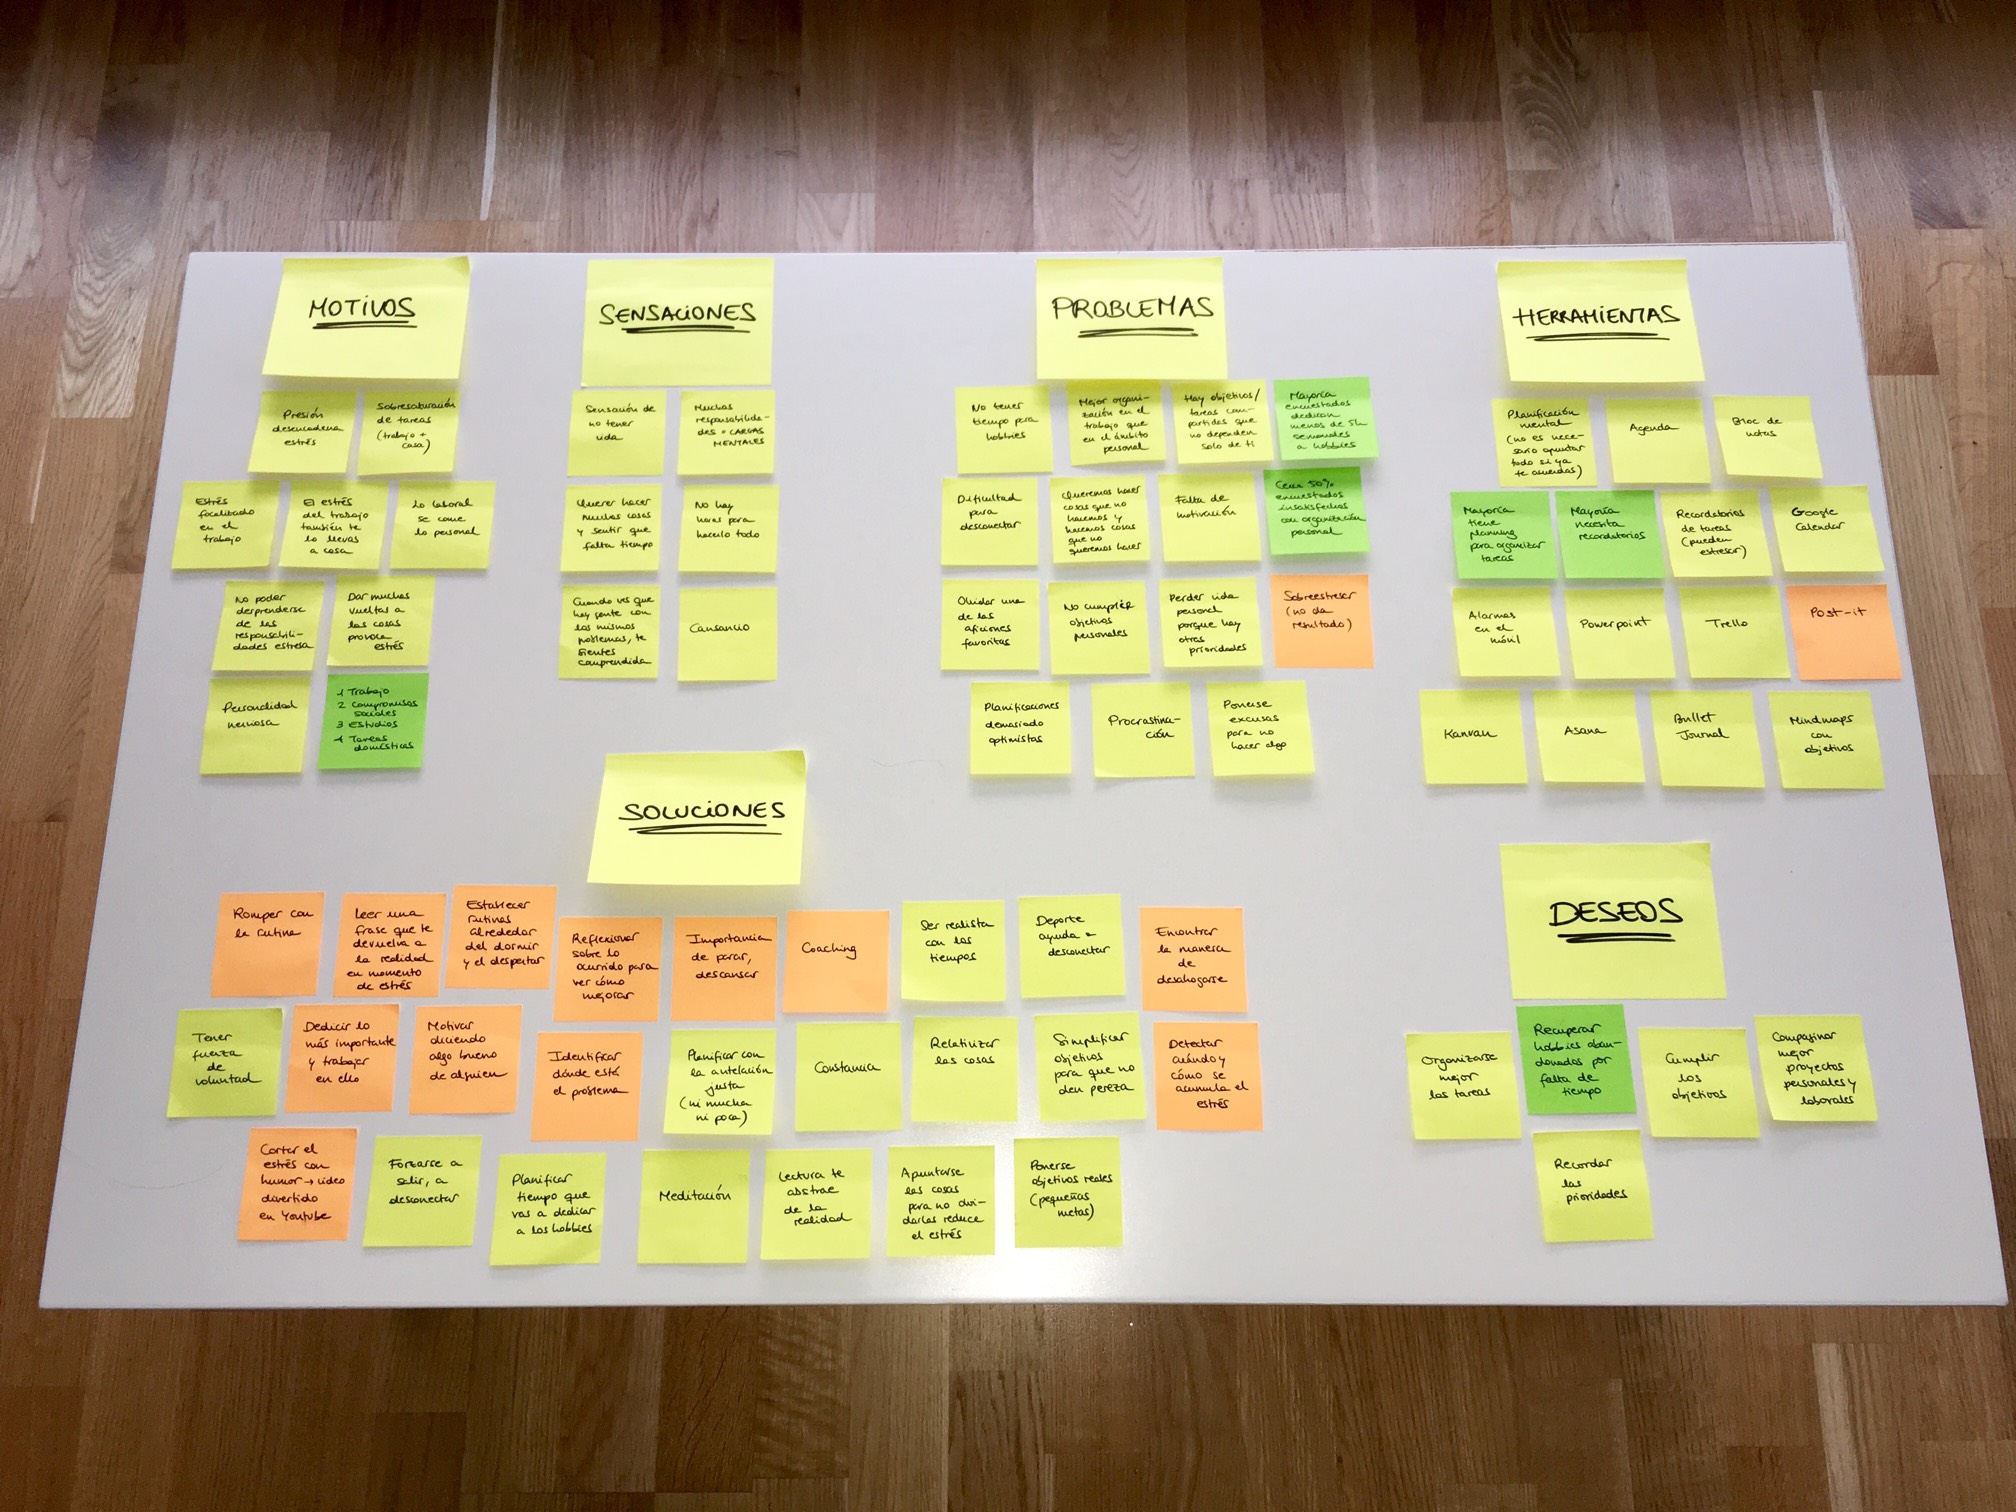 MOTIVOS
Presión
desencadena
estrés
Sobresaturación
de tareas
(trabajo +
casa)
Estrés
focalizado
en el
trabajo
El estrés
del trabajo
también te
lo llevas
a casa
Lo laboral
se come
lo personal
No poder
desprenderse
de las
responsabili-
dades estresa
Dar muchas
vueltas a
las cosas
provoca
estrés
Personalidad
nerviosa
1 Trabajo
2 Compromisos
sociales
3 Estudios
4 Tareas
domésticas
SENSACIONES
Sensación de
no tener
vida
Muchas
responsabilida-
des = CARGAS
MENTALES
Querer hacer
muchas cosas
y sentir que
falta tiempo
No hay
horas para
hacerlo todo
Cuando ves que
hay gente con
los mismos
problemas, te
sientes
comprendida
Cansancio
PROBLEMAS
No tener
tiempo para
hobbies
Mejor organi-
zación en el
trabajo que
en el ámbito
personal
Hay objetivos/
tareas com-
partidas que
no dependen
solo de ti
Mayoría
encuestados
dedican
menos de 5h
semanales
a hobbies
Dificultad
para
desconectar
Queremos hacer
cosas que no
hacemos y
hacemos cosas
que no
queremos hacer
Falta de
motivación
Casi 50%
encuestados
insatisfechos
con organización
personal
Olvidar una
de las
aficiones
favoritas
No cumplir
objetivos
personales
Perder vida
personal
porque hay
otras
prioridades
Sobreestresar
(no da
resultado)
Planificaciones
demasiado
optimistas
Procrastina-
ción
Ponerse
excusas
para no
hacer algo
HERRAMIENTAS
Planificación
mental
(no es nece-
sario apuntar
todo si ya
te acuerdas)
Agenda
Bloc de
notas
Mayoría
tiene
planning
para organizar
tareas
Mayoría
necesita
recordatorios
Recordatorios
de tareas
(pueden
estresar)
Google
Calendar
Alarmas
en el
móvil
Powerpoint
Trello
Post-it
Kanvan
Asana
Bullet
Journal
Mindmaps
con
objetivos
SOLUCIONES
Romper con
la rutina
Leer una
frase que te
devuelva a
la realidad
en momento
de estrés
Establecer
rutinas
alrededor
del dormir
y el despertar
Reflexionar
sobre lo
ocurrido para
ver cómo
mejorar
Importancia
de parar,
descansar
Coaching
Ser realista
con los
tiempos
Deporte
ayuda a
desconectar
Encontrar
la manera
de
desahogarse
Tener
fuerza
de
voluntad
Dedicir lo
más importante
y trabajar
en ello
Motivar
diciendo
algo bueno
de alguien
Identificar
dónde está
el problema
Planificar con
la antelación
justa
(ni mucha
ni poca)
Constancia
Relativizar
las cosas
Simplificar
objetivos
para que no
den pereza
Detectar
cuándo y
cómo se
acumula el
estrés
Cortar el
estrés con
humor → video
divertido
en Youtube
Forzarse a
salir, a
desconectar
Planificar
tiempo que
vas a dedicar
a los hobbies
Meditación
Lectura te
abstrae
de la
realidad
Apuntarse
las cosas
para no olvi-
darlas reduce
el estrés
Ponerse
objetivos reales
(pequeñas
metas)
DESEOS
Organizarse
mejor
las tareas
Recuperar
hobbies aban-
donados por
falta de
tiempo
Cumplir
los
objetivos
Compaginar
mejor
proyectos
personales y
laborales
Recordar
las
prioridades